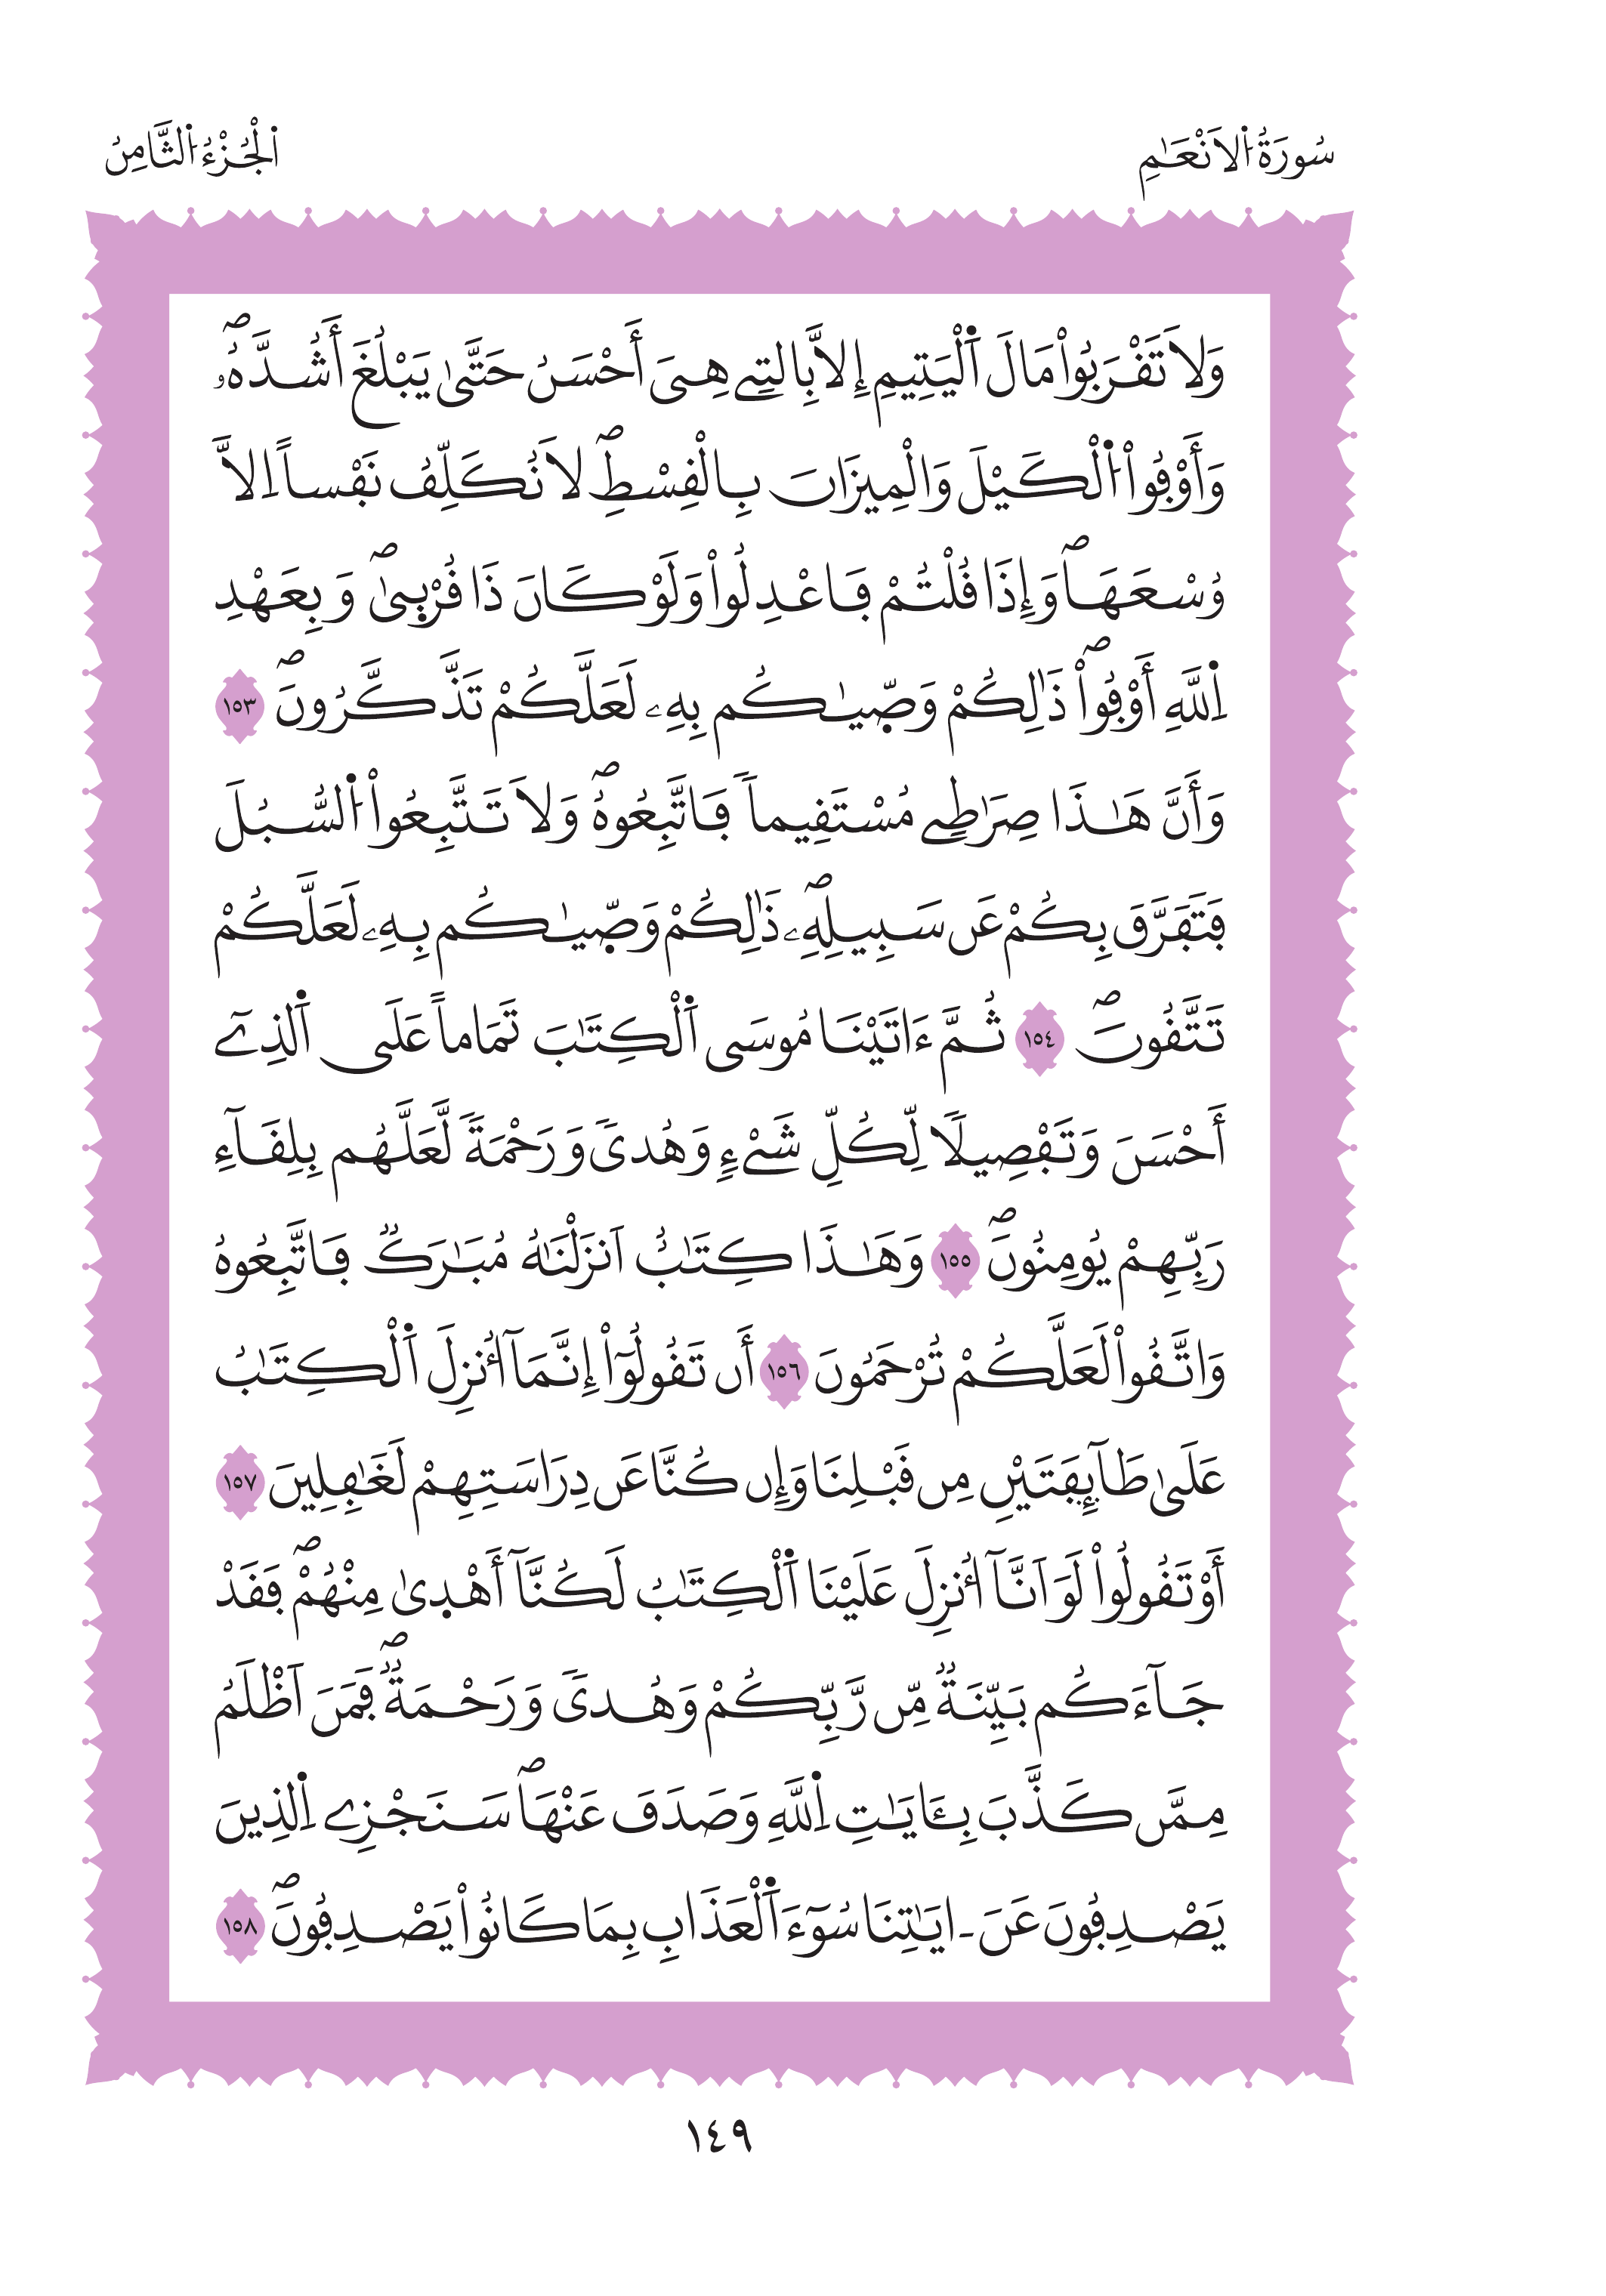 سُورَةُ اُ۬لَانْعَٰمِ
اُ۬لْجُزْءُ اُ۬لثَّامِنُ
وَلَا تَقْرَبُواْ مَالَ اَ۬لْيَتِيمِ إِلَّا بِالتِے هِىَ أَحْسَنُ حَتَّىٰ يَبْلُغَ أَشُدَّهُۥۖ
وَأَوْفُواْ اُ۬لْكَيْلَ وَالْمِيزَانَ بِالْقِسْطِۖ لَا نُكَلِّفُ نَفْساً اِلَّا
وُسْعَهَاۖ وَإِذَا قُلْتُمْ فَاعْدِلُواْ وَلَوْ كَانَ ذَا قُرْب۪ىٰۖ وَبِعَهْدِ
اِ۬للَّهِ أَوْفُواْۖ ذَٰلِكُمْ وَصّ۪يٰكُم بِهِۦ لَعَلَّكُمْ تَذَّكَّرُونَۖ ١٥٣
وَأَنَّ هَٰذَا صِرَٰطِے مُسْتَقِيماً فَاتَّبِعُوهُۖ وَلَا تَتَّبِعُواْ اُ۬لسُّبُلَ
فَتَفَرَّقَ بِكُمْ عَن سَبِيلِهِۦۖ ذَٰلِكُمْ وَصّ۪يٰكُم بِهِۦ لَعَلَّكُمْ
تَتَّقُونَۖ ١٥٤ ثُمَّ ءَاتَيْنَا مُوسَى اَ۬لْكِتَٰبَ تَمَاماً عَلَى اَ۬لذِےٓ
أَحْسَنَ وَتَفْصِيلًا لِّكُلِّ شَےْءٍ وَهُدىً وَرَحْمَةً لَّعَلَّهُم بِلِقَآءِ
رَبِّهِمْ يُومِنُونَۖ ١٥٥ وَهَٰذَا كِتَٰبٌ اَنزَلْنَٰهُ مُبَٰرَكٌ فَاتَّبِعُوهُ
وَاتَّقُواْ لَعَلَّكُمْ تُرْحَمُونَ ١٥٦ أَن تَقُولُوٓاْ إِنَّمَآ أُنزِلَ اَ۬لْكِتَٰبُ
عَلَىٰ طَآئِفَتَيْنِ مِن قَبْلِنَا وَإِن كُنَّا عَن دِرَاسَتِهِمْ لَغَٰفِلِينَ ١٥٧
أَوْ تَقُولُواْ لَوَ اَنَّآ أُنزِلَ عَلَيْنَا اَ۬لْكِتَٰبُ لَكُنَّآ أَهْد۪ىٰ مِنْهُمْۖ فَقَدْ
جَآءَكُم بَيِّنَةٌ مِّن رَّبِّكُمْ وَهُدىً وَرَحْمَةٌۖ فَمَنَ اَظْلَمُ
مِمَّن كَذَّبَ بِـَٔايَٰتِ اِ۬للَّهِ وَصَدَفَ عَنْهَاۖ سَنَجْزِے اِ۬لذِينَ
يَصْدِفُونَ عَنَ ـ ايَٰتِنَا سُوٓءَ اَ۬لْعَذَابِ بِمَا كَانُواْ يَصْدِفُونَۖ ١٥٨
١٤٩